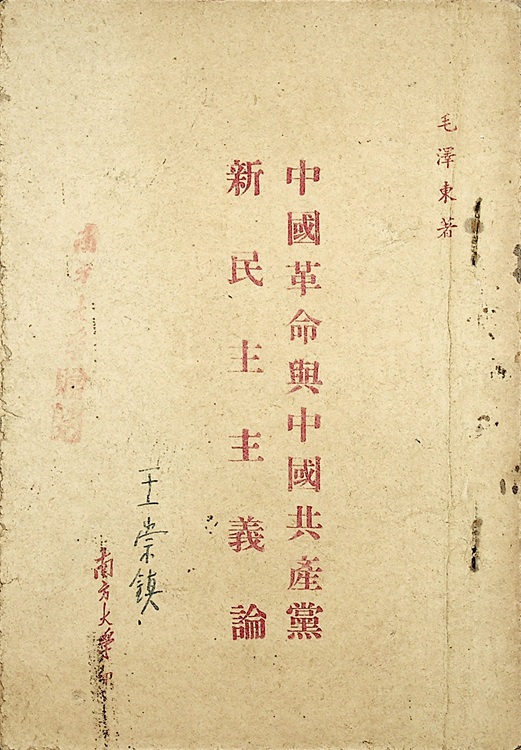 毛澤東著
中國革命與中國共產黨
新民主主義論
王崇鎮
南方大學